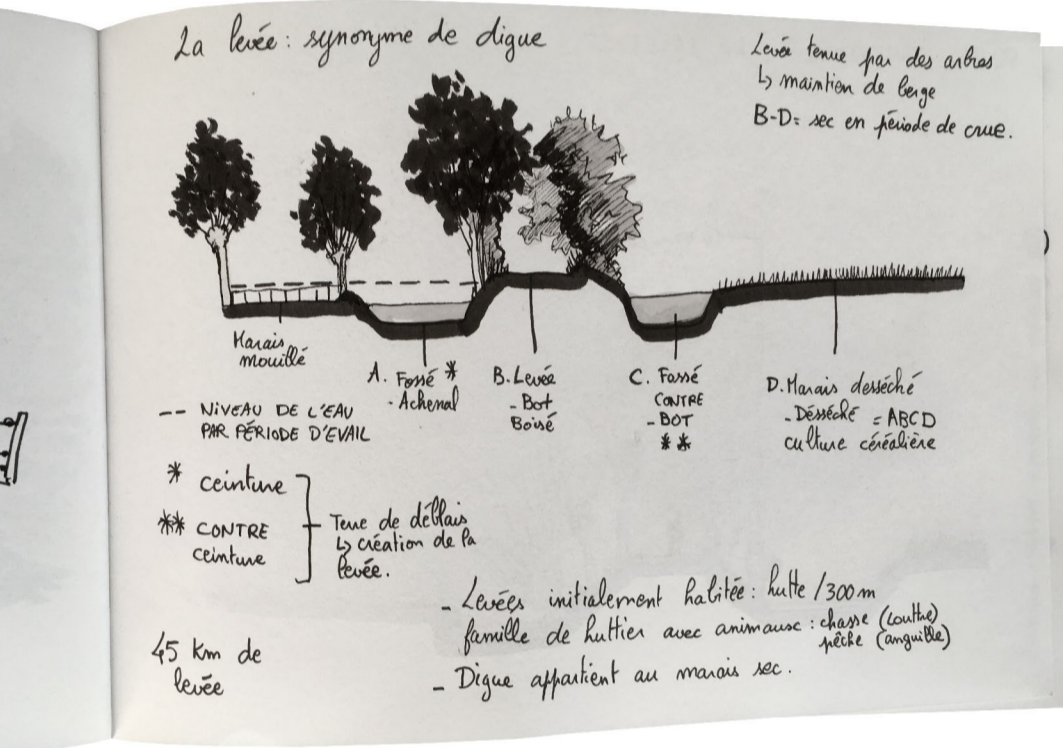 La levée : synonyme de digue
Levée tenue par des arbres
↳ maintien de berge
B-D = sec en période de crue.
Marais
mouillé
A. Fossé *
- Achenal
B. Levée
- Bot
Boisé
C. Fossé
CONTRE
- BOT
**
D. Marais desséché
- Désséché = ABCD
culture céréalière
-- NIVEAU DE L'EAU
PAR PÉRIODE D'EVAIL
* ceinture
** CONTRE
ceinture
Terre de déblais
↳ création de la
levée.
- Levées initialement habitée : hutte / 300 m
famille de huttier avec animaux : chasse (loutre)
pêche (anguille)
- Digue appartient au marais sec.
45 km de
levée